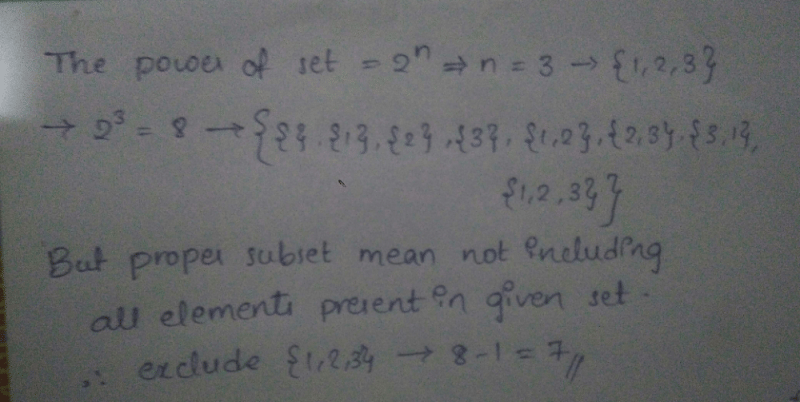 The power of set = 2ⁿ ⇒ n = 3 → {1, 2, 3}
→ 2³ = 8 → {{}, {1}, {2}, {3}, {1,2}, {2,3}, {3,1},
{1,2,3}}
But proper subset mean not including
all elements present in given set.
∴ exclude {1,2,3} → 8-1 = 7//